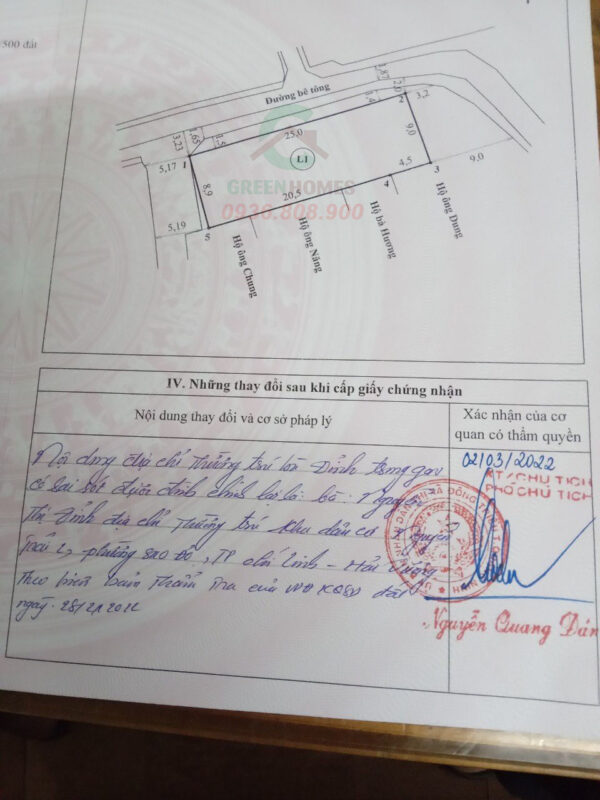 500 đất
Đường bê tông
1,87
2,0
3,2
2
1,4
25,0
9,0
1,65
1,5
3,23
5,17
1
L1
4,5
3
9,0
4
GREENHOMES
8,9
20,5
0936.808.900
5,19
5
Hộ ông Chung
Hộ ông Năng
Hộ bà Hương
Hộ ông Dung
IV. Những thay đổi sau khi cấp giấy chứng nhận
Nội dung thay đổi và cơ sở pháp lý
Xác nhận của cơ
quan có thẩm quyền
Nội dung địa chỉ thường trú bà Đỉnh
có sai sót được đính chính lại là: bà: Nguyễn
Thị địa chỉ thường trú Khu dân cư
Trãi 2, phường Sao Đỏ, TP Chí Linh - Hải Dương
Theo biên bản thẩm tra của đất
ngày
02/03/2022
KT/CHỦ TỊCH
PHÓ CHỦ TỊCH
Nguyễn Quang Dán